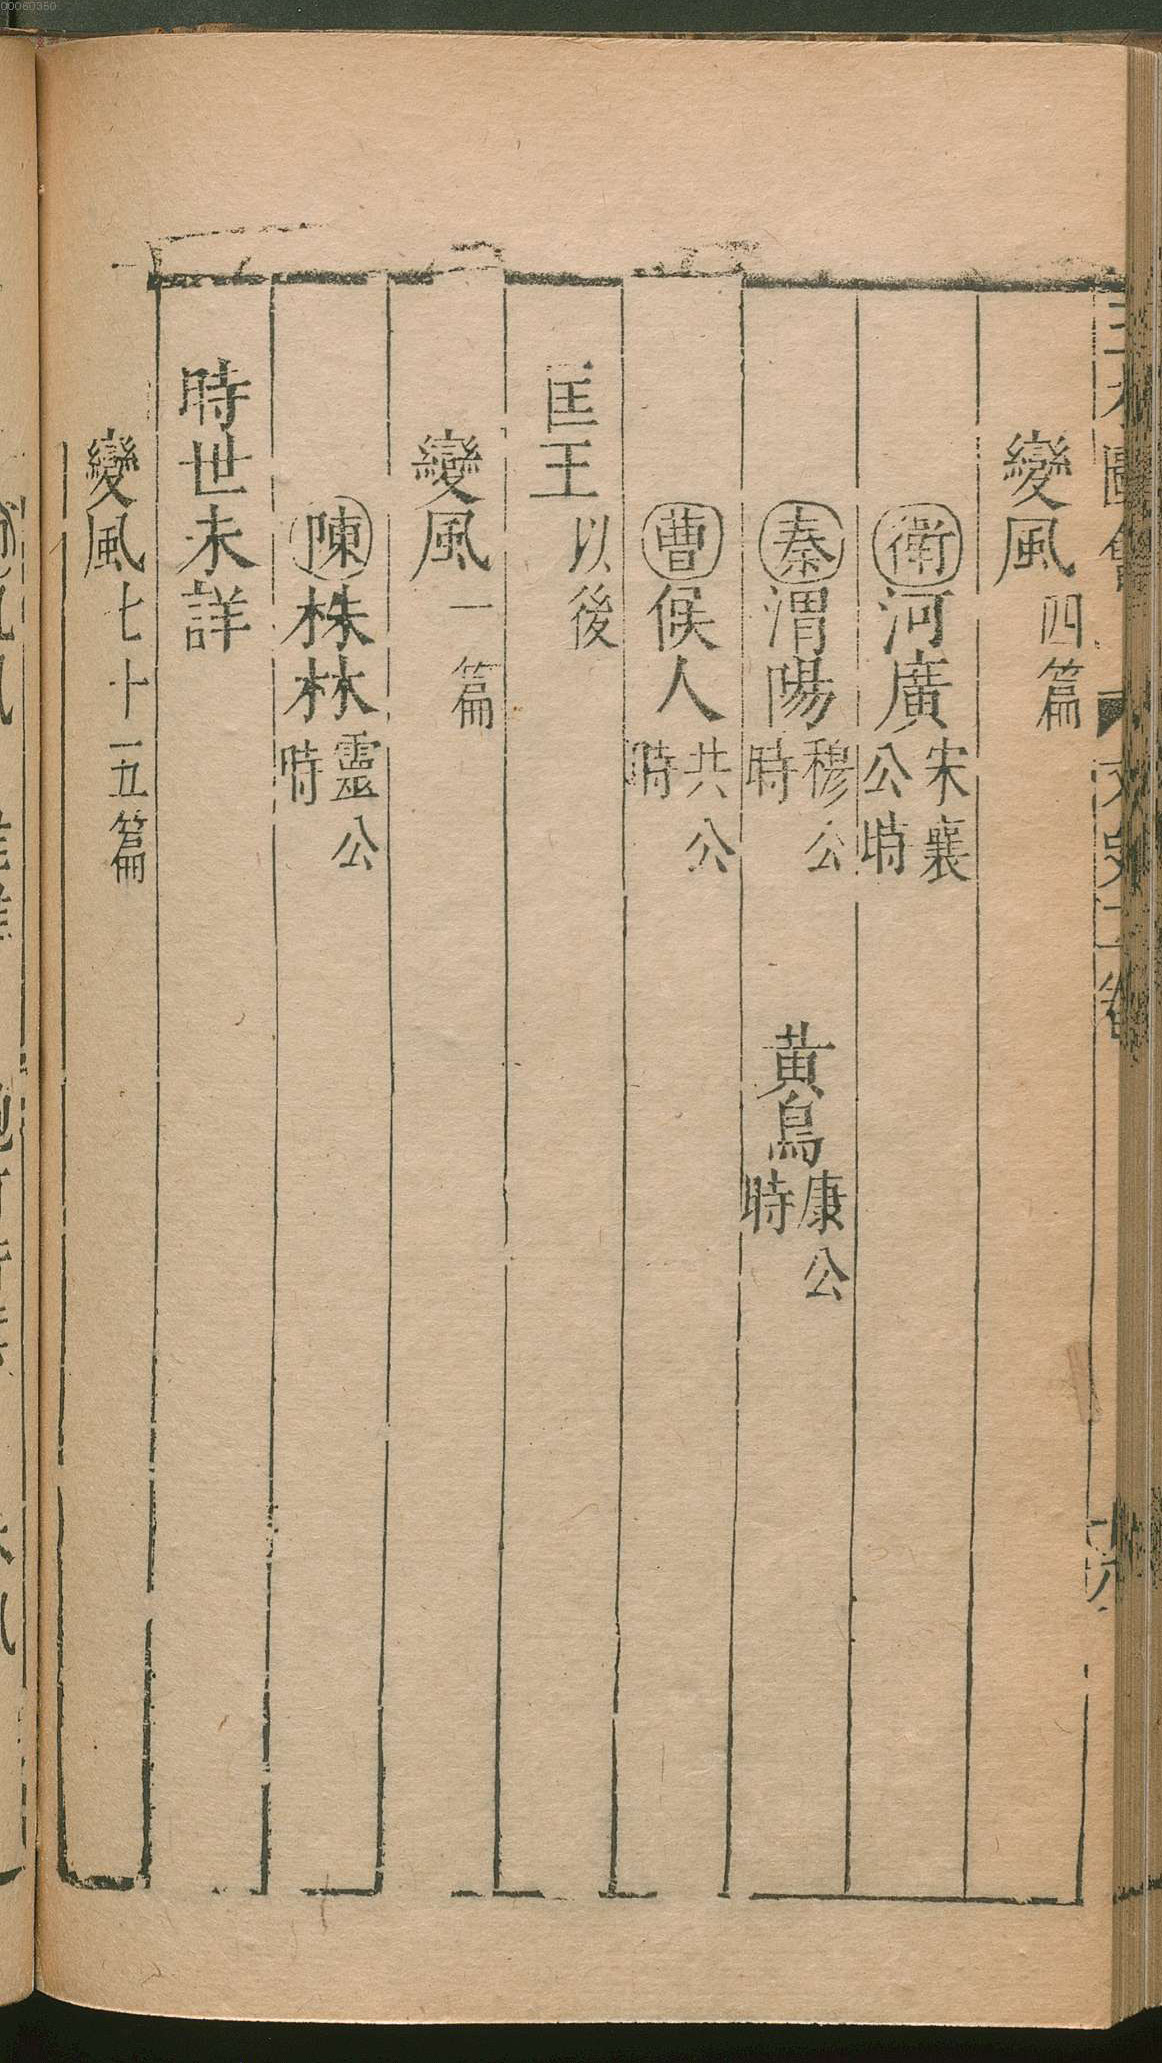 變風四篇
衛河廣宋襄公時
秦渭陽穆公時 黃鳥康公時
曹候人共公時
匡王以後
變風一篇
陳株林靈公時
時世未詳
變風七十五篇
00060350